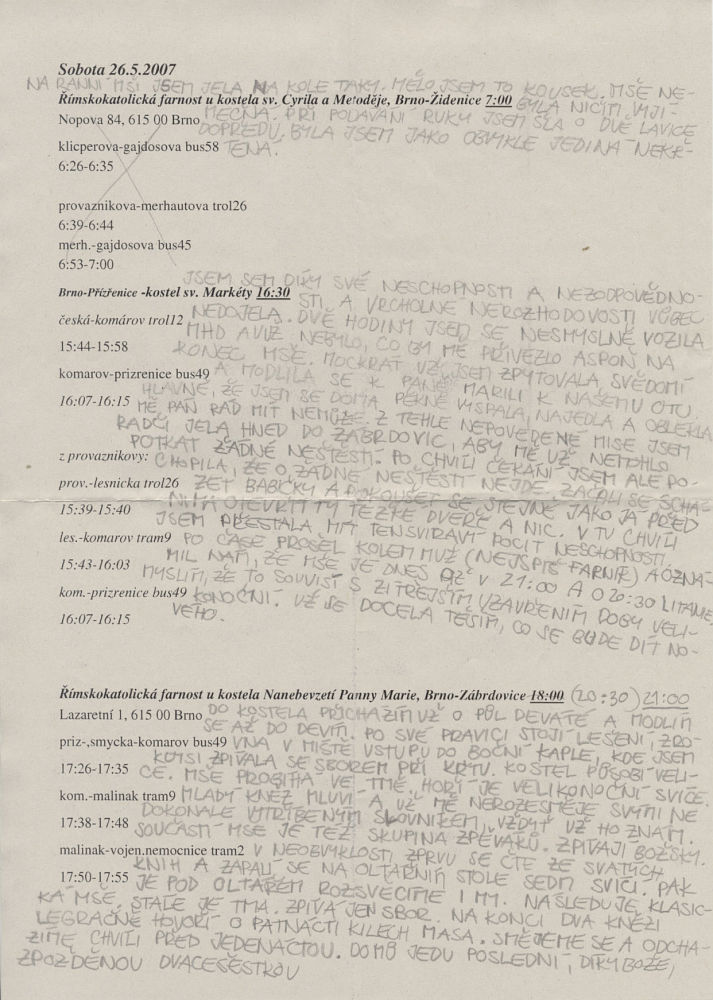 Sobota 26.5.2007
NA RANNÍ MŠI JSEM JELA NA KOLE TAKY. MĚLO JSEM TO KOUSEK. MŠE NE-
Římskokatolická farnost u kostela sv. Cyrila a Metoděje, Brno-Židenice 7:00
BYLA NIČÍM VÝJI-
Nopova 84, 615 00 Brno
MEČNÁ. PŘI PODÁVÁNÍ RUKY JSEM ŠLA O DVĚ LAVICE
DOPŘEDU, BYLA JSEM JAKO OBVYKLE JEDINÁ NEKŘ-
klicperova-gajdosova bus58
TĚNÁ.
6:26-6:35
provaznikova-merhautova trol26
6:39-6:44
merh.-gajdosova bus45
6:53-7:00
JSEM SEM DÍKY SVÉ NESCHOPNOSTI A NEZODPOVĚDNO-
Brno-Přízřenice -kostel sv. Markéty 16:30
STI A VRCHOLNÉ NEROZHODOVOSTI VŮBEC
česká-komárov trol12
NEDOJELA. DVĚ HODINY JSEM SE NESMYSLNĚ VOZILA
15:44-15:58
MHD A UŽ NEBYLO, CO BY MĚ PŘIVEZLO ASPOŇ NA
KONEC MŠE. MOCKRÁT UŽ JSEM ZPYTOVALA SVĚDOMÍ
komarov-prizrenice bus49
A MODLILA SE K PANĚ MARII K NAŠEMU OTCI
16:07-16:15
HLAVNĚ, ŽE JSEM SE DOMA PĚKNĚ VYSPALA, NAJEDLA A OBLÉKLA
MĚ PÁN RÁD MÍT NEMŮŽE. Z TÉHLE NEPOVEDENÉ MISE JSEM
RADČI JELA HNED DO ZÁBRDOVIC, ABY MĚ UŽ NEMOHLO
POTKAT ŽÁDNÉ NEŠTĚSTÍ. PO CHVÍLI ČEKÁNÍ JSEM ALE PO-
z provaznikovy:
CHOPILA, ŽE O ŽÁDNÉ NEŠTĚSTÍ NEJDE. ZAČALI SE SCHÁ-
prov.-lesnicka trol26
ZET BABIČKY A POKOUŠET SE, STEJNĚ JAKO JÁ PŘED
15:39-15:40
NIMI OTEVŘÍT TY TĚŽKÉ DVEŘE A NIC. V TU CHVÍLI
JSEM PŘESTALA MÍT TEN SVÍRAVÝ POCIT NESCHOPNOSTI.
les.-komarov tram9
PO ČASE PROŠEL KOLEM MUŽ (NEJSPÍŠ FARNÍK) A OZNÁ-
15:43-16:03
MIL NÁM, ŽE MŠE JE DNES AŽ V 21:00 A O 20:30 LITANIE,
MYSLÍM, ŽE TO SOUVISÍ S ZÍTŘEJŠÍM UZAVŘENÍM DOBY VELI-
kom.-prizrenice bus49
KONOČNÍ. UŽ SE DOCELA TĚŠÍM, CO SE BUDE DÍT NO-
16:07-16:15
VÉHO.
Římskokatolická farnost u kostela Nanebevzetí Panny Marie, Brno-Zábrdovice 18:00 (20:30) 21:00
Lazaretní 1, 615 00 Brno
DO KOSTELA PŘICHÁZÍM UŽ O PŮL DEVÁTÉ A MODLÍM
SE AŽ DO DEVÍTI. PO SVÉ PRAVICI STOJÍ LEŠENÍ, ZRO-
priz-,smycka-komarov bus49
VNA V MÍSTĚ VSTUPU DO BOČNÍ KAPLE, KDE JSEM
17:26-17:35
KDYSI ZPÍVALA SE SBOREM PŘI KŘTU. KOSTEL PŮSOBÍ VELI-
CE. MŠE PROBÍHÁ VE TMĚ, HOŘÍ JE VELIKONOČNÍ SVÍCE.
kom.-malinak tram9
MLADÝ KNĚZ MLUVÍ A UŽ MĚ NEROZESMĚJE SVÝM NE
17:38-17:48
DOKONALE VYTŘÍBENÝM SLOVNÍKEM, VŽDYŤ UŽ HO ZNÁM.
SOUČÁSTÍ MŠE JE TÉŽ SKUPINA ZPĚVÁKŮ. ZPÍVAJÍ BOŽSKY.
malinak-vojen.nemocnice tram2
V NEOBVYKLOSTI, ZPRVU SE ČTE ZE SVATÝCH
17:50-17:55
KNIH A ZAPÁLÍ SE NA OLTÁŘNÍM STOLE SEDM SVÍCÍ. PAK
JE POD OLTÁŘEM ROZSVĚCÍME I MY. NÁSLEDUJE KLASIC-
KÁ MŠE, STÁLE JE TMA. ZPÍVÁ JEN SBOR. NA KONCI DVA KNĚZI
LEGRAČNĚ HOVOŘÍ O PATNÁCTI KILECH MASA. SMĚJEME SE A ODCHÁ-
ZÍME CHVÍLI PŘED JEDENÁCTOU. DOMŮ JEDU POSLEDNÍ, DÍKY BOŽE,
ZPOŽDĚNOU DVACEŠESTKOU